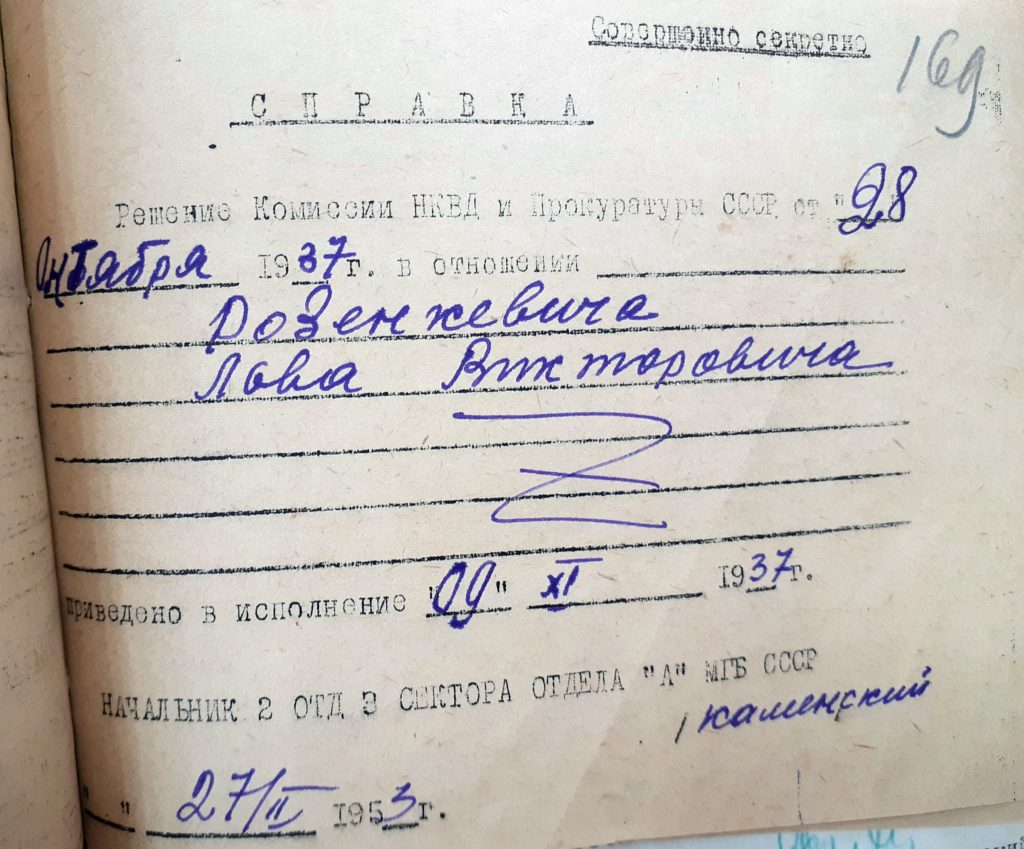 Совершенно секретно
169
СПРАВКА
Решение Комиссии НКВД и Прокуратуры СССР от "28"
Октября 1937г. в отношении
Розенкевича
Льва Викторовича
приведено в исполнение "09" XI 1937г.
НАЧАЛЬНИК 2 ОТД 3 СЕКТОРА ОТДЕЛА "А" МГБ СССР
/ каменский
" " 27/II 1953г.